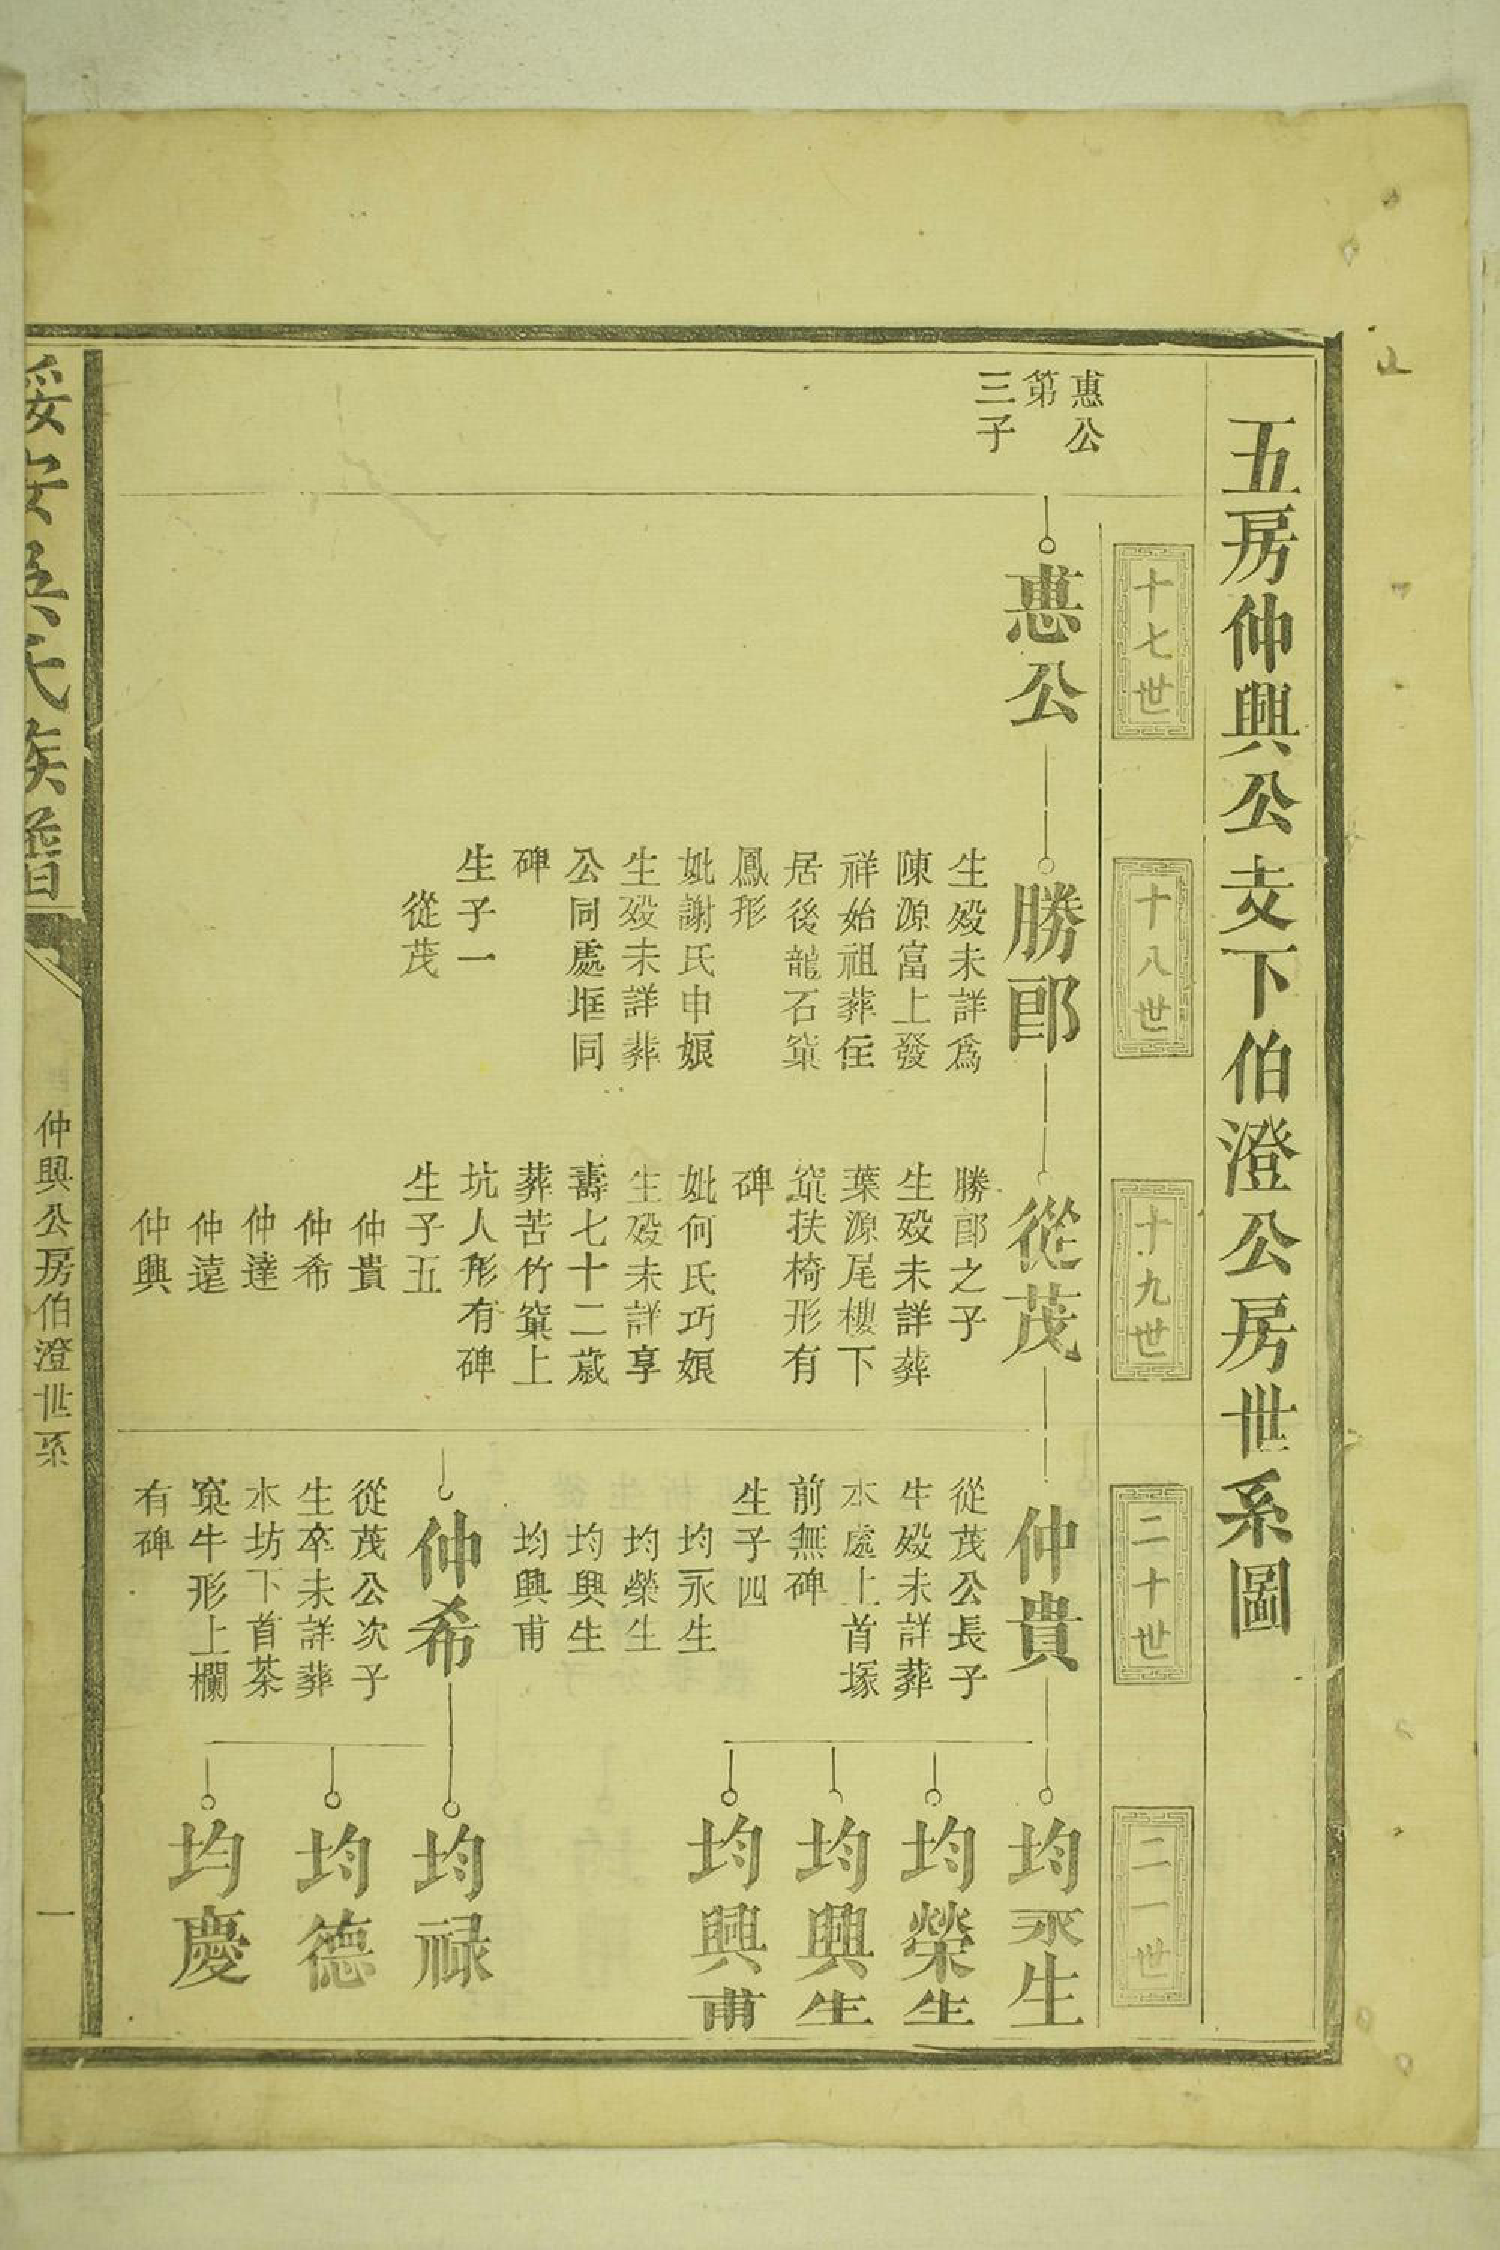 五房仲興公支下伯澄公房世系圖
十七世
十八世
十九世
二十世
二一世
惠公
第
三子
惠公
勝郎
生殁未詳為
陳源富上發
祥始祖葬住
居後龍石窠
鳳形
妣謝氏申娘
生殁未詳葬
公同處堆同
碑
生子一
從茂
從茂
勝郎之子
生殁未詳葬
葉源尾樓下
窠扶椅形有
碑
妣何氏巧娘
生殁未詳享
壽七十二歲
葬苦竹窠上
坑人形有碑
生子五
仲貴
仲希
仲達
仲遠
仲興
仲貴
從茂公長子
生殁未詳葬
水處上首塚
前無碑
生子四
均永生
均榮生
均興生
均興甫
仲希
從茂公次子
生卒未詳葬
水坊下首茶
窠牛形上欄
有碑
均永生
均榮生
均興生
均興甫
均禄
均德
均慶
綏安吳氏族譜
仲興公房伯澄世系
一